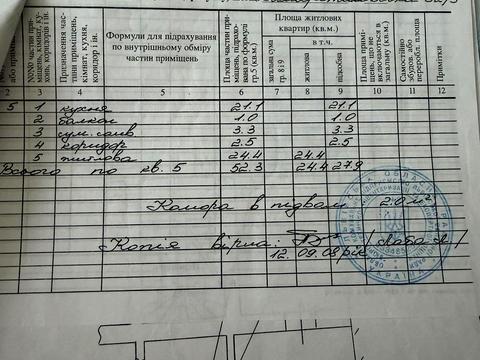 або приміщ.
№№ частин приміщень, кімнат, кухонь, коридорів і ін.
Призначення частини приміщень, кімнат, кухня, коридор і ін.
Формули для підрахування по внутрішньому обміру частин приміщень
Площа частин приміщень, підрахована по формулі гр.5 (кв.м.)
Площа житлових квартир (кв.м.)
загальна сума гр. 8 і 9
в т.ч.
житлова
підсобна
Площа приміщень, що не включаються в загальну (кв.м.)
Самостійно збудов. або переробл. площа
Примітки
2 3 4 5 6 7 8 9 10 11 12
5 1 кухня 21.1 21.1
2 балкон 1.0 1.0
3 сум. санв 3.3 3.3
4 коридор 2.5 2.5
5 житлова 24.4 24.4
Всього по кв. 5 52.3 24.4 27.9
Комора в підвалі 2.0 м²
Копія вірна:
12. 09. 08 рік